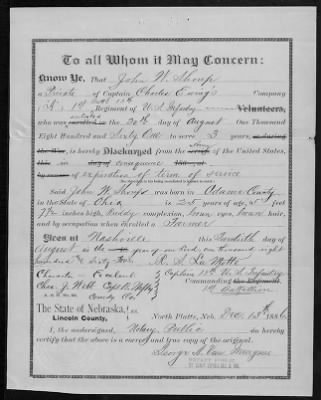 To all Whom it May Concern:
Know Ye, That John W. Shoup
a Private of Captain Charles Ewing's Company
"A" 1st Batt 13th Regiment of U.S. Infantry Volunteers,
who was enlisted the 20th day of August One Thousand
Eight Hundred and Sixty One to serve 3 years,
is hereby Discharged from the Army of the United States,
this in consequence
of expiration of term of service
Said John W. Shoup was born in Adams County
in the State of Ohio is 25 years of age, 5 feet
7½ inches high, Ruddy complexion, eyes, hair,
and by occupation when enrolled a Farmer
Given at Nashville this Twentieth day of
August in the year of our Lord one thousand eight
hundred & Sixty Four R. S. La Motte
Character - Excellent Captain 13th U.S. Infantry
Chas. J. Webb Capt 13 Infty Commanding the
Comdg Co. 1st Battalion
The State of Nebraska, ss.
Lincoln County, North Platte, Neb. Dec. 13th 1886
I, the undersigned, Notary Public in
hereby certify that the above is a true and correct copy of the original.
NOTARY PUBLIC